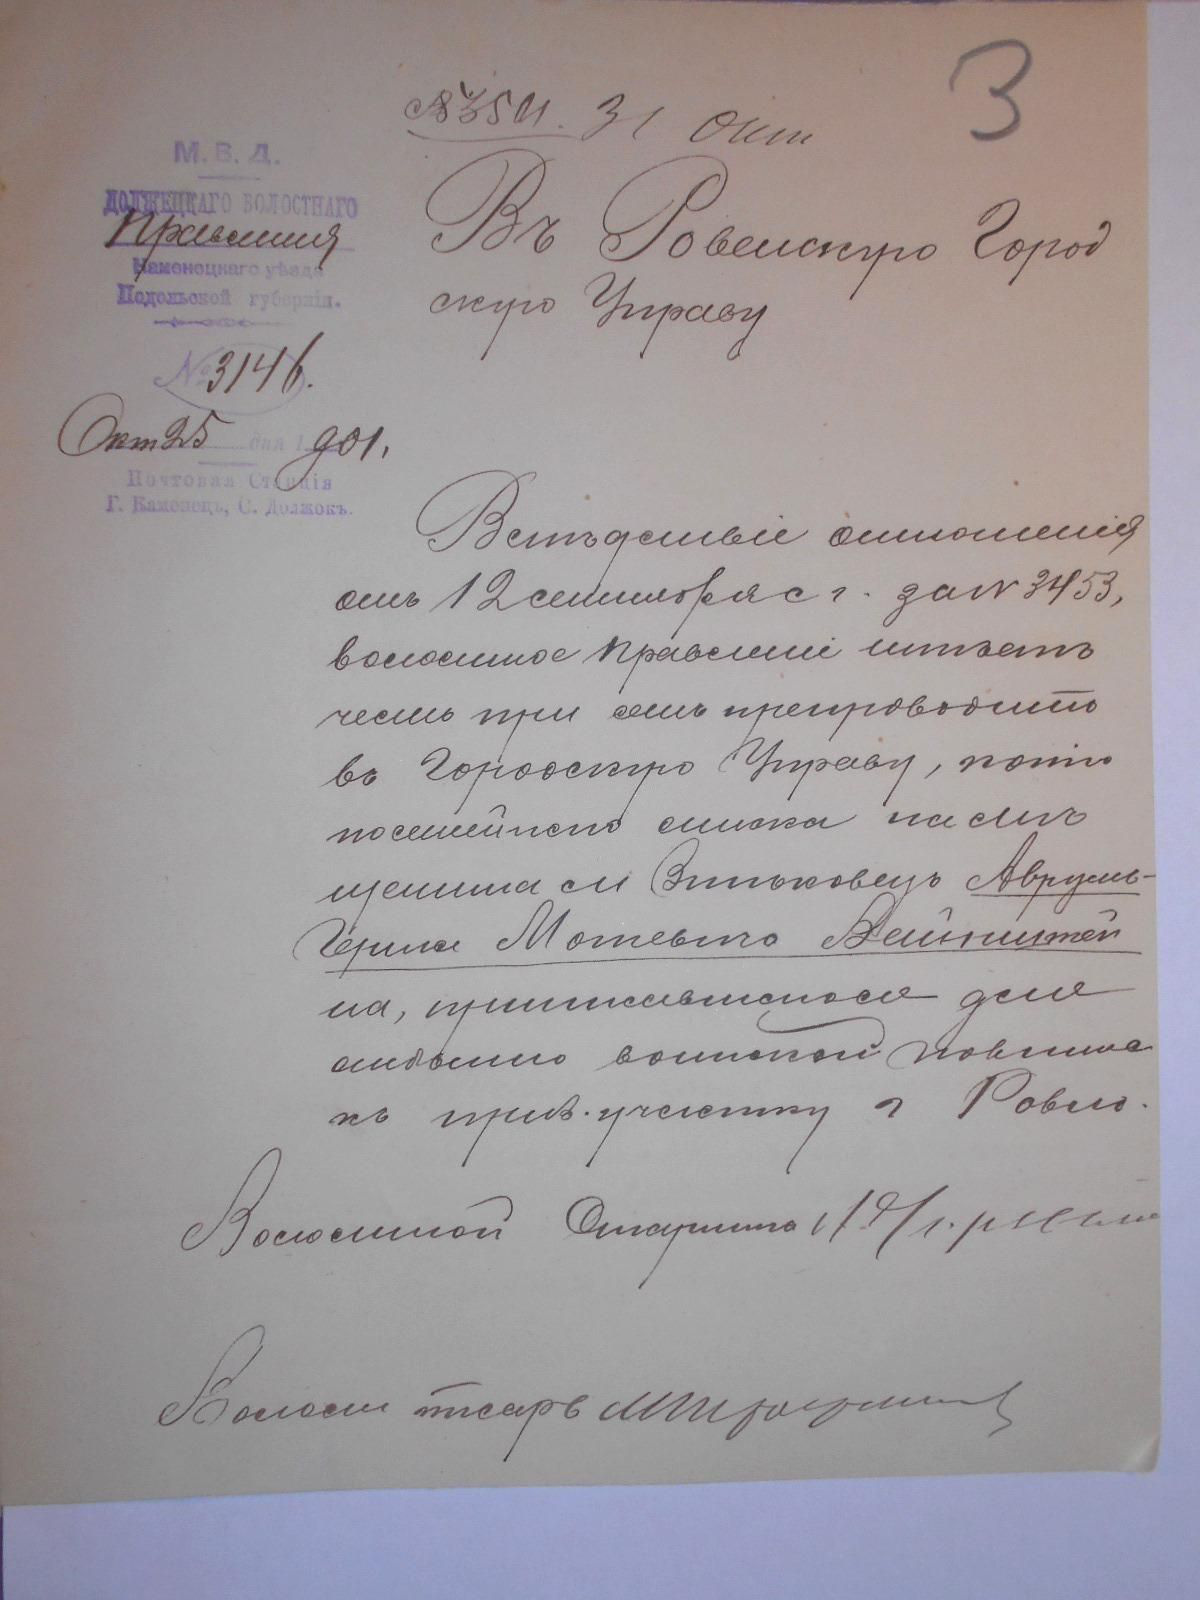 3
31 Окт
М. В. Д.
ДОЛЖЕЦКАГО ВОЛОСТНАГО
Правления
Каменецкаго уѣзда
Подольской губернiи.
№ 3146.
Окт 25 дня 1901.
Почтовая Станцiя
Г. Каменецъ, С. Должокъ.
Въ Ровенскую Город
скую Управу
Вслѣдствіе отношенія
отъ 12 сентября с г. за № 3453,
волостное Правленіе имѣетъ
честь при семъ препроводить
въ Городскую Управу, копію
посемейнаго списка на мѣ
щанина м Зиньковецъ Аврумъ-
Герша Мотевича Вайнштей
на, приписавшагося для
отбытію воинской повинно
къ приз. участку г Ровно.
Волостной Старшина
Волост писарь